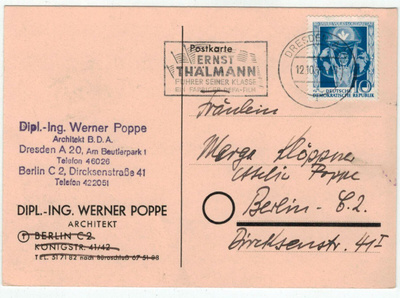 Postkarte
ERNST
THÄLMANN
FÜHRER SEINER KLASSE
EIN FARBIGER DEFA-FILM
DRESDEN
12.10.
DEUTSCHE
DEMOKRATISCHE REPUBLIK
10
Dipl.-Ing. Werner Poppe
Architekt B.D.A.
Dresden A 20, Am Beutlerpark 1
Telefon 46026
Berlin C 2, Dircksenstraße 41
Telefon 422051
DIPL.-ING. WERNER POPPE
ARCHITEKT
BERLIN C2
KÖNIGSTR. 41/42
TEL. 51 71 82 nach Büroschluß 67 51 03
Fräulein
Marga Klöppner
Poppe
Berlin-C.2.
Dircksenstr. 41 I